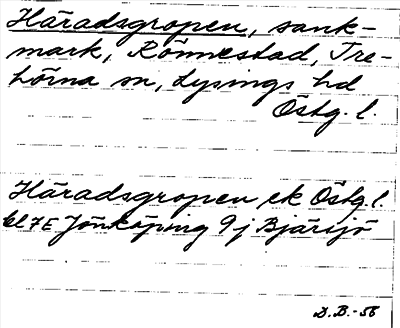 Häradsgropen, sank-
mark, Rönnestad, Tre-
hörna sn, Lysings hd
Östg. l.
Häradsgropen ek Östg. l.
7E Jönköping 9j Bjärsjö
D.B.-56